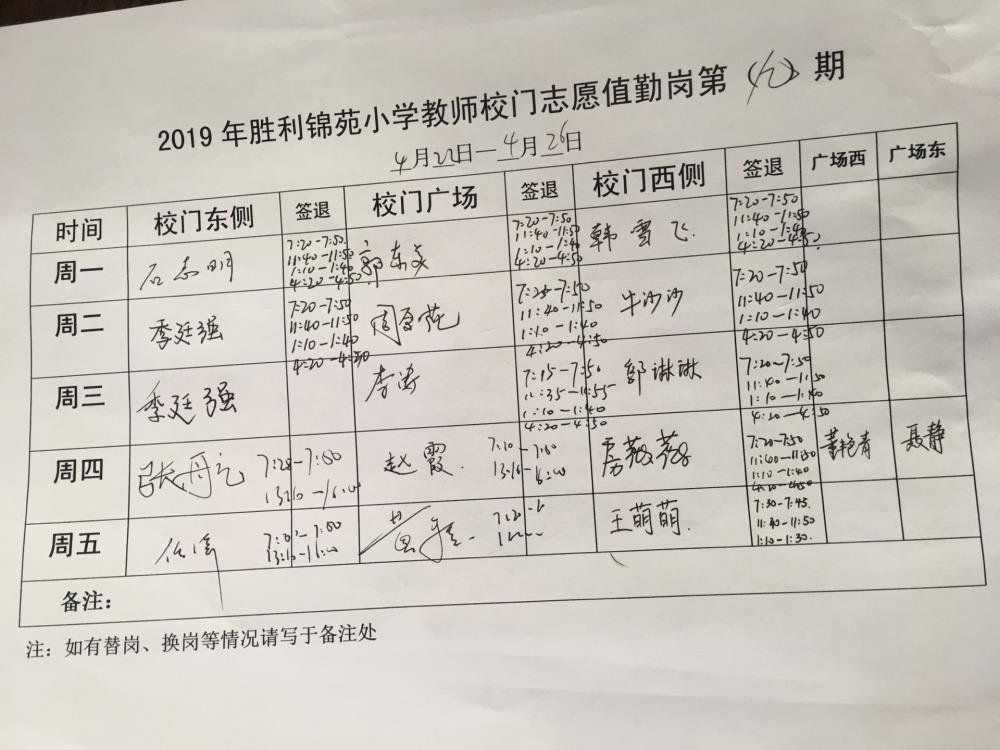 2019 年胜利锦苑小学教师校门志愿值勤岗第（九）期
4月22日—4月26日
时间 校门东侧 签退 校门广场 签退 校门西侧 签退 广场西 广场东
周一 石志明 7:20-7:50 郭东文 7:20-7:50 韩雪飞. 7:20-7:50
11:40-11:50 11:40-11:50 11:40-11:50
1:10-1:40 1:10-1:40 1:10-1:40
4:20-4:50 4:20-4:50 4:20-4:50.
周二 季廷强 7:20-7:50 7:20-7:50 牛沙沙 7:20-7:50
11:40-11:50 11:40-11:50 11:40-11:50
1:10-1:40 1:10-1:40 1:10-1:40
4:20-4:50 4:20-4:50 4:20-4:50
周三 季廷强 李涛 7:15-7:50 邹琳琳 7:20-7:50
11:35-11:55 11:40-11:50
1:10-1:40 1:10-1:40
4:20-4:50 4:20-4:50
周四 张丹 赵霞. 房薇薇 7:20-7:50 董艳青 聂静
13:10-16:00 11:40-11:50
1:10-1:40
4:20-4:50
周五 王萌萌. 7:30-7:45.
11:40-11:50
1:10-1:30.
备注：
注：如有替岗、换岗等情况请写于备注处